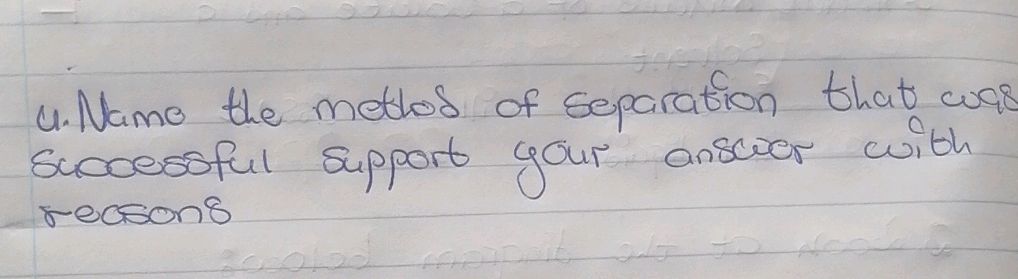 4. Name the method of separation that was
successful support your answer with
reasons